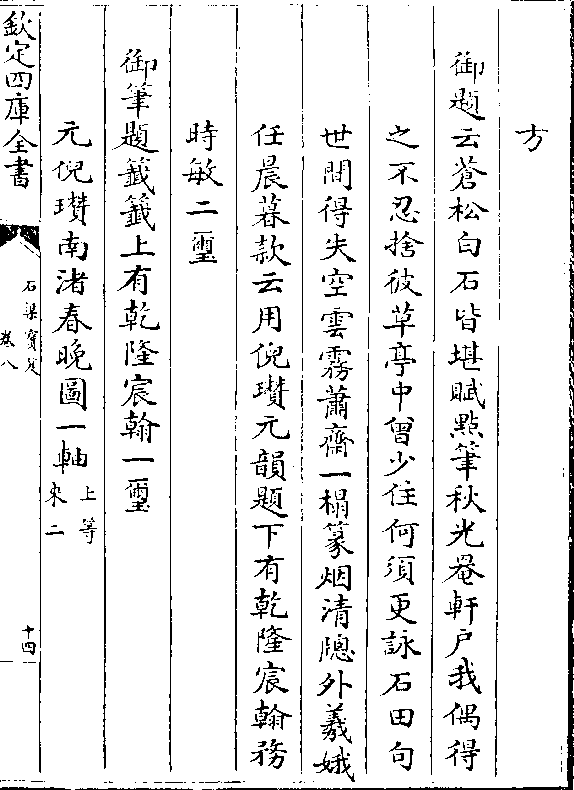 方
御題云蒼松白石皆堪賦點筆秋光罨軒户我偶得
之不忍捨彼草亭中曾少住何須更詠石田句
世間得失空雲霧蕭齋一榻篆烟清牕外羲娥
任晨暮款云用倪瓉元韻題下有乾隆宸翰務
時敏二璽
御筆題籤籤上有乾隆宸翰一璽
元倪瓉南渚春晚圖一軸上等
來二
欽定四庫全書
石渠寳笈
卷八
十四